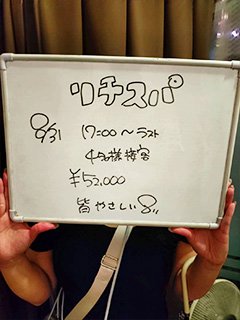 リチスパ
8/31 17:00〜ラスト
4名様接客
¥52,000
皆やさしい!!